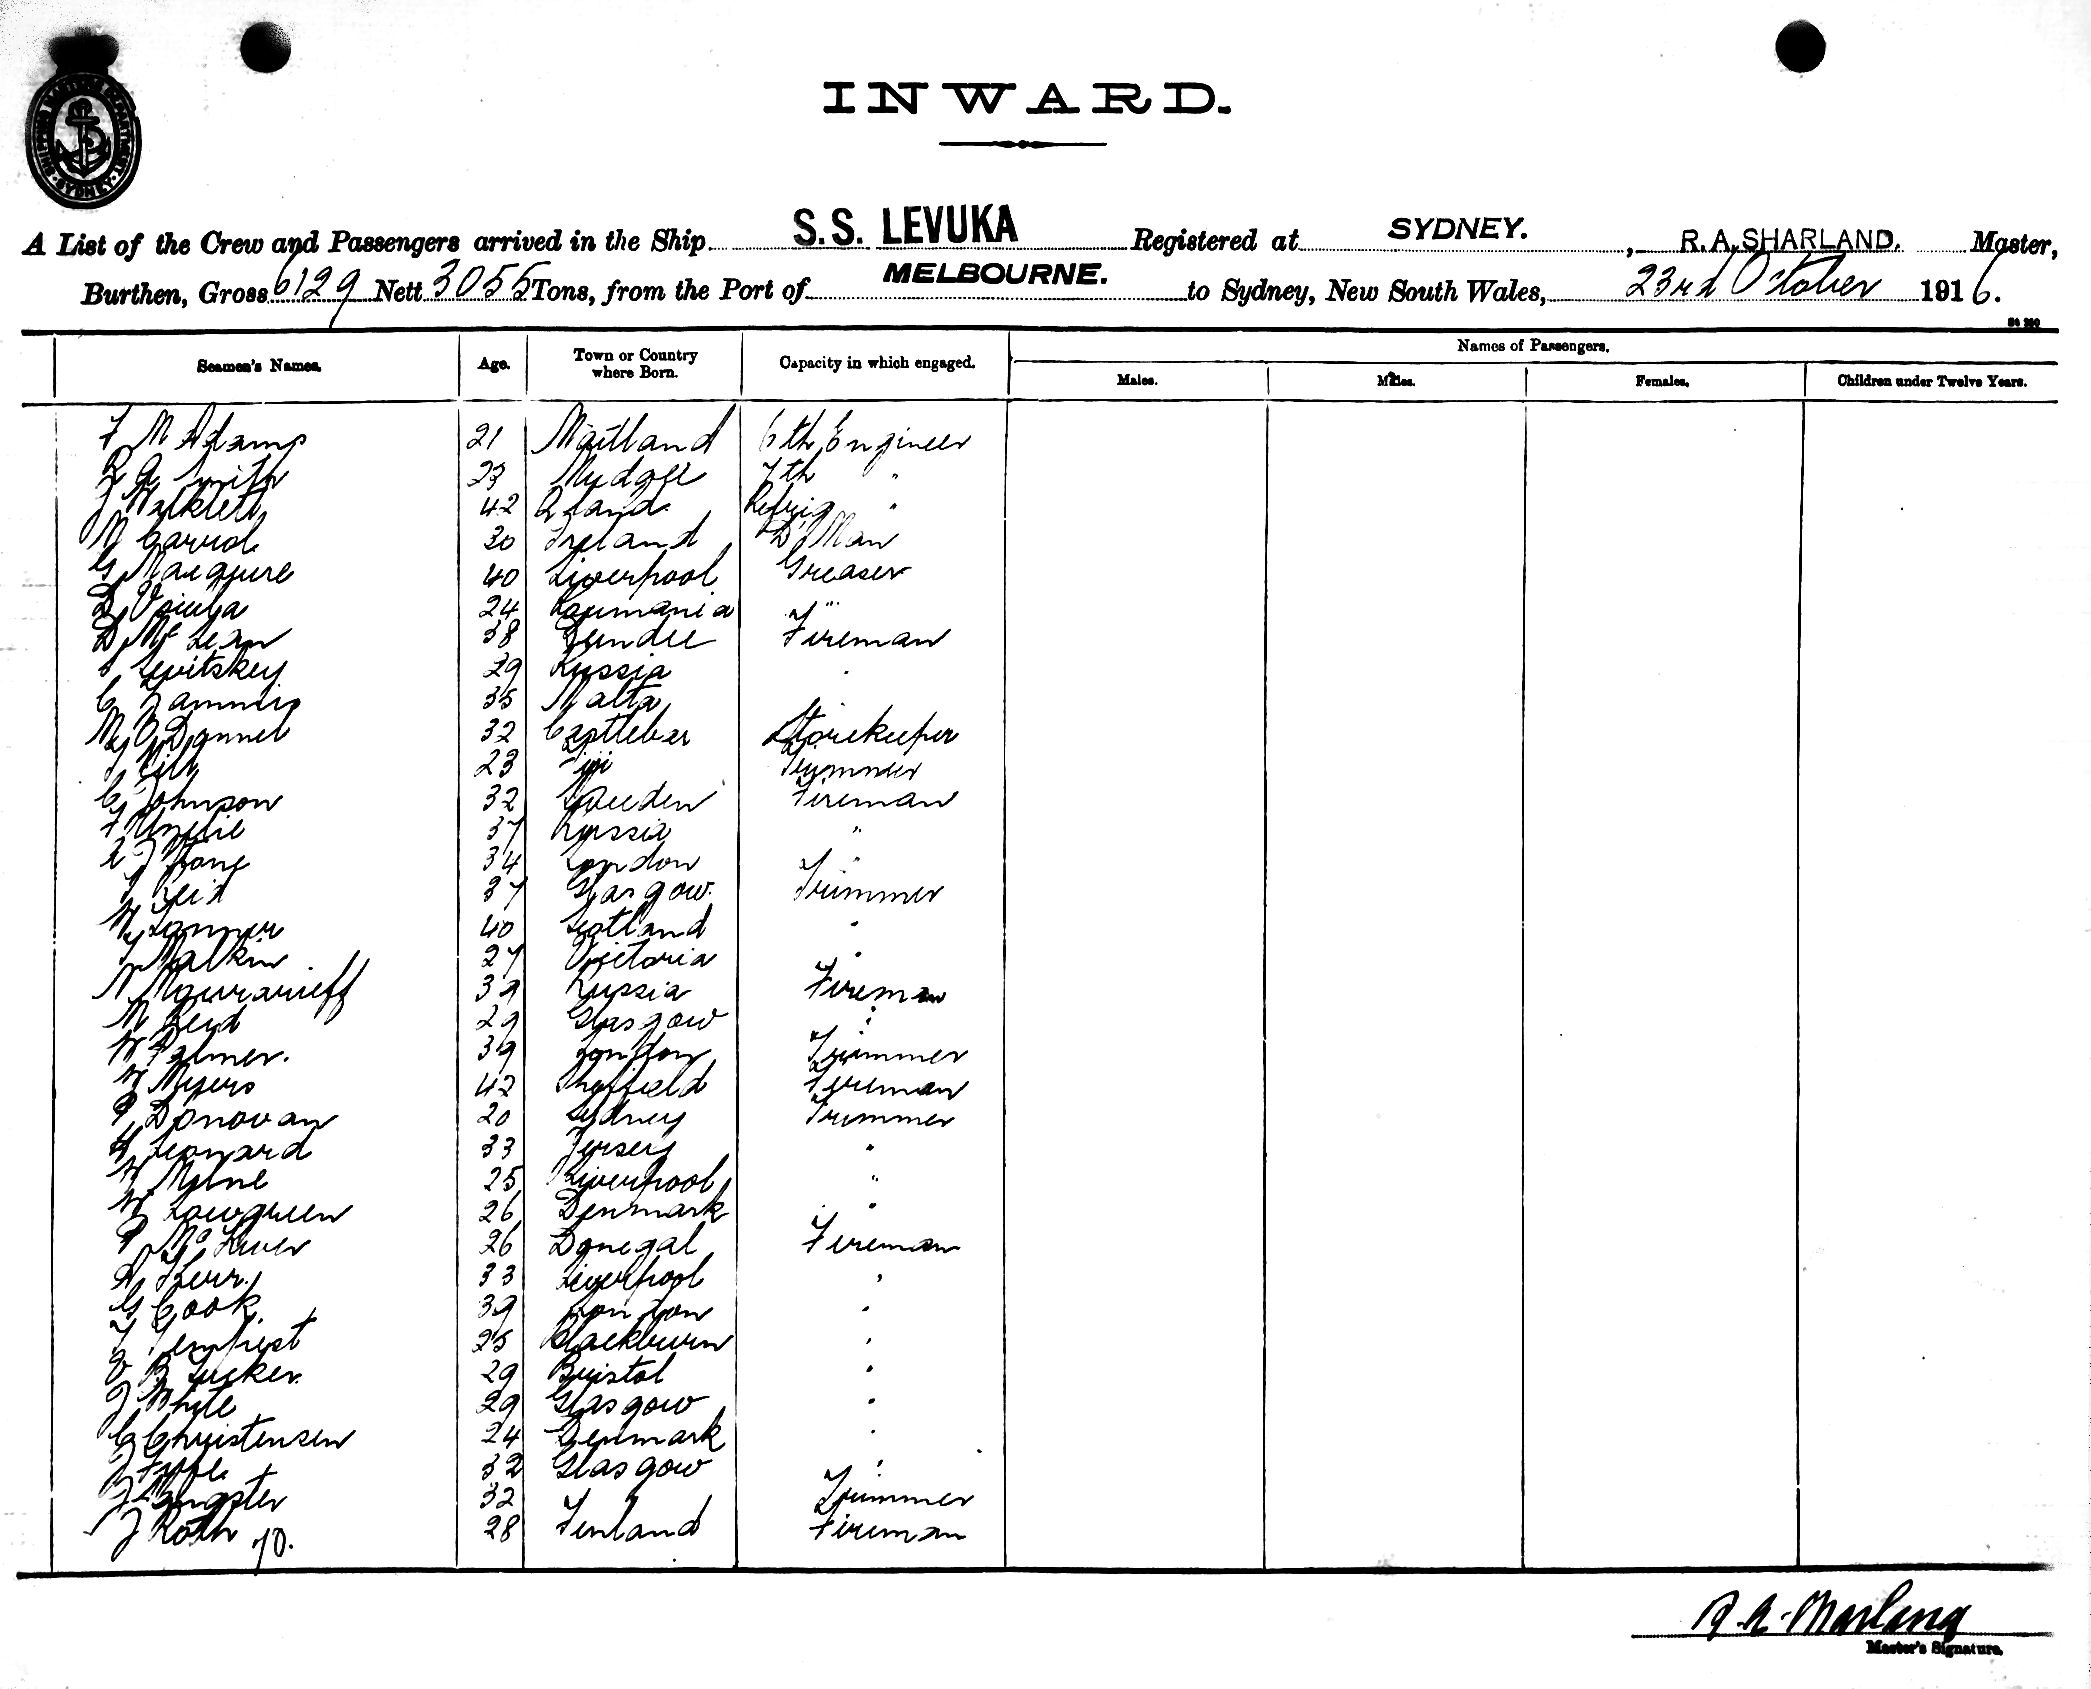 SHIPPING MASTERS DEPARTMENT SYDNEY
INWARD.
A List of the Crew and Passengers arrived in the Ship S.S. LEVUKA Registered at SYDNEY. , R.A. SHARLAND. Master,
Burthen, Gross 6129 Nett 3055 Tons, from the Port of MELBOURNE. to Sydney, New South Wales, 23rd October 1916.
Seamen's Names. Age. Town or Country where Born. Capacity in which engaged. Names of Passengers.
Males. Males. Females. Children under Twelve Years.
F M Adams 21 Maitland 6th Engineer
Smith 23 Mudgee 7th "
J Walklett 42 Qland. Refrig "
M Carrol 30 Ireland D'Man
G Macguire 40 Liverpool Greaser
24 Roumania "
D McLean 38 Dundee Fireman
Levitskey 29 Russia "
C Zammit 35 Malta
M O'Donnel 32 Castlebar Storekeeper
23 Fiji Trimmer
C Johnson 32 Sweden Fireman
F 37 Russia "
34 London "
J Reid 37 Glasgow. Trimmer
W 40 Scotland "
J Malkin 27 Victoria "
N 39 Russia Fireman
M Reid 29 Glasgow "
W Palmer. 39 London Trimmer
W Myers 42 Sheffield Fireman
P Donovan 20 Sydney Trimmer
H Leonard 33 Jersey "
W Milne 25 Liverpool "
W Lowgreen 26 Denmark "
P 26 Donegal Fireman
A Kerr. 33 Liverpool "
G Cook. 39 London "
J Tempest 25 Blackburn "
E B Tucker 29 Bristol "
J White 29 Glasgow "
C Christensen 24 Denmark "
J 32 Glasgow "
J Sangster 32 " Trimmer
J Roth 28 Finland Fireman
70.
R.A. Sharland
Master's Signature.